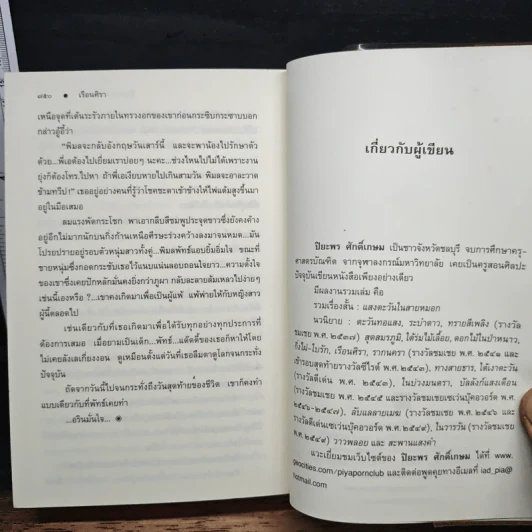 ๗๘๐ ● เรือนศิรา
เหนือจุดที่เต้นระรัวภายในทรวงอกของเขาก่อนกระซิบกระซาบบอก
กล่าวสู้อี้ว่า
"พิมลจะกลับอังกฤษวันเสาร์นี้ และจะพาน้องไปรักษาตัว
ด้วย...พี่เอต้องไปเยี่ยมเราบ่อยๆ นะคะ...ช่วงไหนไปไม่ได้เพราะงาน
ยุ่งก็ต้องโทร.ไปหา ถ้าพี่เอเงียบหายไปเกินสามวัน พิมลจะอาละวาด
ข้ามทวีป!" เธออยู่อย่างคนที่รู้ว่าโชคชะตาเข้าข้างให้ไพ่แต้มสูงขึ้นมา
อยู่ในมือเสมอ
ลมแรงพัดกระโชก พาเอากลีบสีชมพูประจุดขาวซึ่งยังคงค้าง
อยู่อีกไม่มากนักบนกิ่งก้านเหนือศีรษะร่วงคว้างลงมาจนหมด...มัน
โปรยปรายอยู่รอบตัวหนุ่มสาวทั้งคู่...พิมลพัทธ์แอบยิ้มอิ่มใจ ขณะที่
ชายหนุ่มซึ่งกอดกระชับเธอไว้แนบแน่นลอบถอนใจยาว...ความตั้งใจ
ของเขาซึ่งเคยปักหลักมั่นคงยิ่งกว่าภูผา กลับละลายล้มเหลวไปง่ายๆ
เช่นนี้เองหรือ ?...เขาคงเกิดมาเพื่อเป็นผู้แพ้ แพ้พ่ายให้กับหญิงสาว
ผู้นี้ตลอดไป
เช่นเดียวกับที่เธอเกิดมาเพื่อให้ได้รับทุกอย่างทุกประการที่
ต้องการเสมอ เมื่อยามเป็นเด็ก...พัทธ์...แด๊ดดี้ของเธอก็หาให้โดย
ไม่เคยลังเลเกี่ยงงอน ดูเหมือนตั้งแต่วันที่เธอลืมตาดูโลกจนกระทั่ง
ปัจจุบัน
ถัดจากวันนี้ไปจนกระทั่งถึงวันสุดท้ายของชีวิต เขาก็คงทำ
แบบเดียวกับที่พัทธ์เคยทำ
...อรินมั่นใจ... ◉
เกี่ยวกับผู้เขียน
ปิยะพร ศักดิ์เกษม เป็นชาวจังหวัดชลบุรี จบการศึกษาครุ-
ศาสตรบัณฑิต จากจุฬาลงกรณ์มหาวิทยาลัย เคยเป็นครูสอนศิลปะ
ปัจจุบันเขียนหนังสือเพียงอย่างเดียว
มีผลงานรวมเล่ม คือ
รวมเรื่องสั้น : แสงตะวันในสายหมอก
นวนิยาย : ตะวันทอแสง, ระบำดาว, ทรายสีเพลิง (รางวัล
ชมเชย พ.ศ.๒๕๓๗) สุดสมรภูมิ, ใต้ร่มไม้เลื้อย, ดอกไม้ในป่าหนาว,
กิ่งไผ่-ใบรัก, เรือนศิรา, รากนครา (รางวัลชมเชย พ.ศ. ๒๕๔๑ และ
เข้ารอบสุดท้ายรางวัลซีไรต์ พ.ศ. ๒๕๔๓), ทางสายธาร, ใต้เงาตะวัน
(รางวัลดีเด่น พ.ศ. ๒๕๔๓), ในบ่วงมนตรา, บัลลังก์แสงเดือน
(รางวัลชมเชย พ.ศ. ๒๕๔๕ และรางวัลชมเชยเซเว่นบุ๊คอวอร์ด พ.ศ.
๒๕๔๖-๒๕๔๗), ลับแลลายเมฆ (รางวัลชมเชย พ.ศ. ๒๕๔๖ และ
รางวัลดีเด่นเซเว่นบุ๊คอวอร์ด พ.ศ. ๒๕๔๘), ในวารวัน (รางวัลชมเชย
พ.ศ. ๒๕๔๙) วาวพลอย และ สะพานแสงคำ
แวะเยี่ยมชมเว็บไซต์ของ ปิยะพร ศักดิ์เกษม ได้ที่ www.
geocities.com/piyapornclub และติดต่อพูดคุยทางอีเมลที่ iad_pia@
hotmail.com